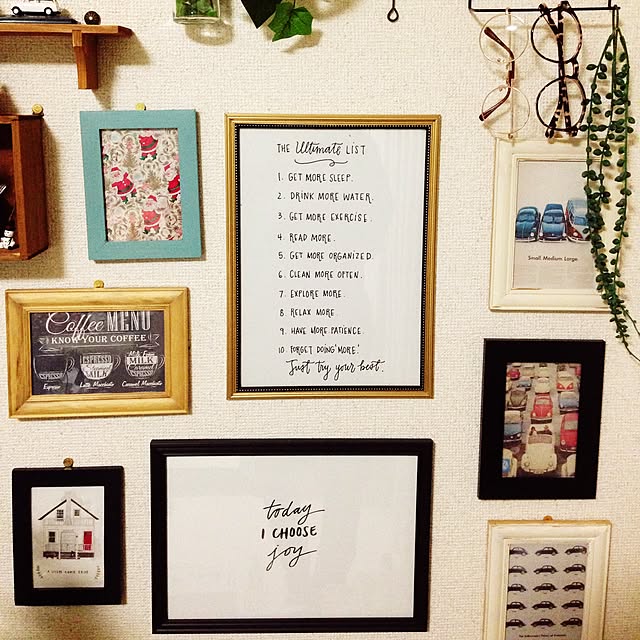 THE Ultimate LIST
1. GET MORE SLEEP.
2. DRINK MORE WATER.
3. GET MORE EXERCISE.
4. READ MORE.
5. GET MORE ORGANIZED.
6. CLEAN MORE OFTEN.
7. EXPLORE MORE.
8. RELAX MORE.
9. HAVE MORE PATIENCE.
10. FORGET DOING 'MORE.'
Just try your best.
Small. Medium. Large.
Coffee MENU
KNOW YOUR COFFEE
ESPRESSO
MILK
ESPRESSO
MILK
ESPRESSO
Espresso
Latte Macchiato
Caramel Macchiato
today
I CHOOSE
joy